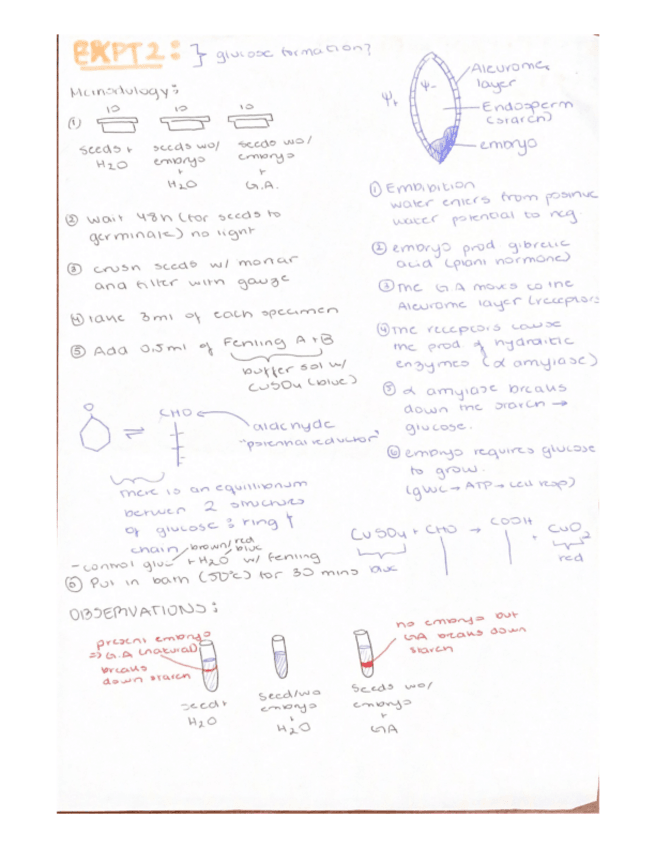 EXPT 2: } glucose formation?
Methodology:
10 10 10
①
seeds + H2O
seeds wo/ embryo + H2O
seeds wo/ embryo + G.A.
② wait 48h (for seeds to
germinate) no light
③ crush seeds w/ mortar
and filter with gauze
④ take 3ml of each specimen
⑤ Add 0.5ml of Fehling A+B
buffer sol w/
CuSO4 (blue)
O
⇌
CHO
aldehyde
"potential reductor"
there is an equillibrium
between 2 structures
of glucose: ring +
chain
brown/red
blue
- control gluc + H2O w/ Fehling
⑥ Put in bath (50°c) for 30 mins
Ψ+
Ψ-
Aleurome
layer
Endosperm
(starch)
embryo
① Embibition
water enters from positive
water potential to neg
② embryo prod gibrelic
acid (plant hormone)
③ the GA moves to the
Aleurome layer (receptors
④ the receptors cause
the prod of hydrolitic
enzymes (α amylase)
⑤ α amylase breaks
down the starch →
glucose.
⑥ embryo requires glucose
to grow.
(gluc → ATP → cell resp)
CuSO4 + CHO → COOH + CuO2
blue
red
OBSERVATIONS:
present embryo
⇒ G.A (natural)
breaks
down starch
no embryo but
GA breaks down
starch
seed +
H2O
Seed/wo
embryo
+
H2O
Seeds wo/
embryo
+
GA